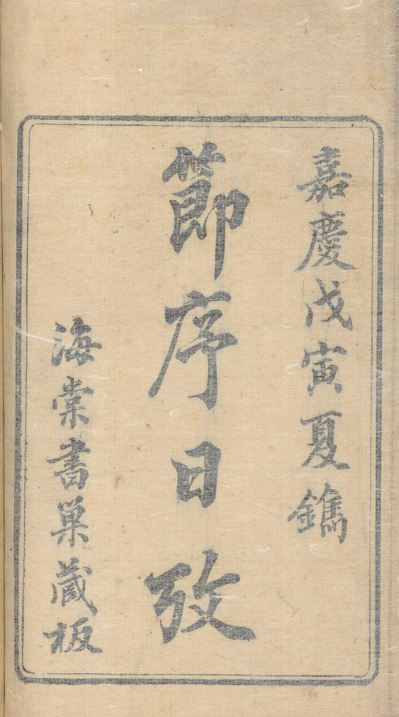 嘉慶戊寅夏鐫
節序日攷
海棠書巢藏板